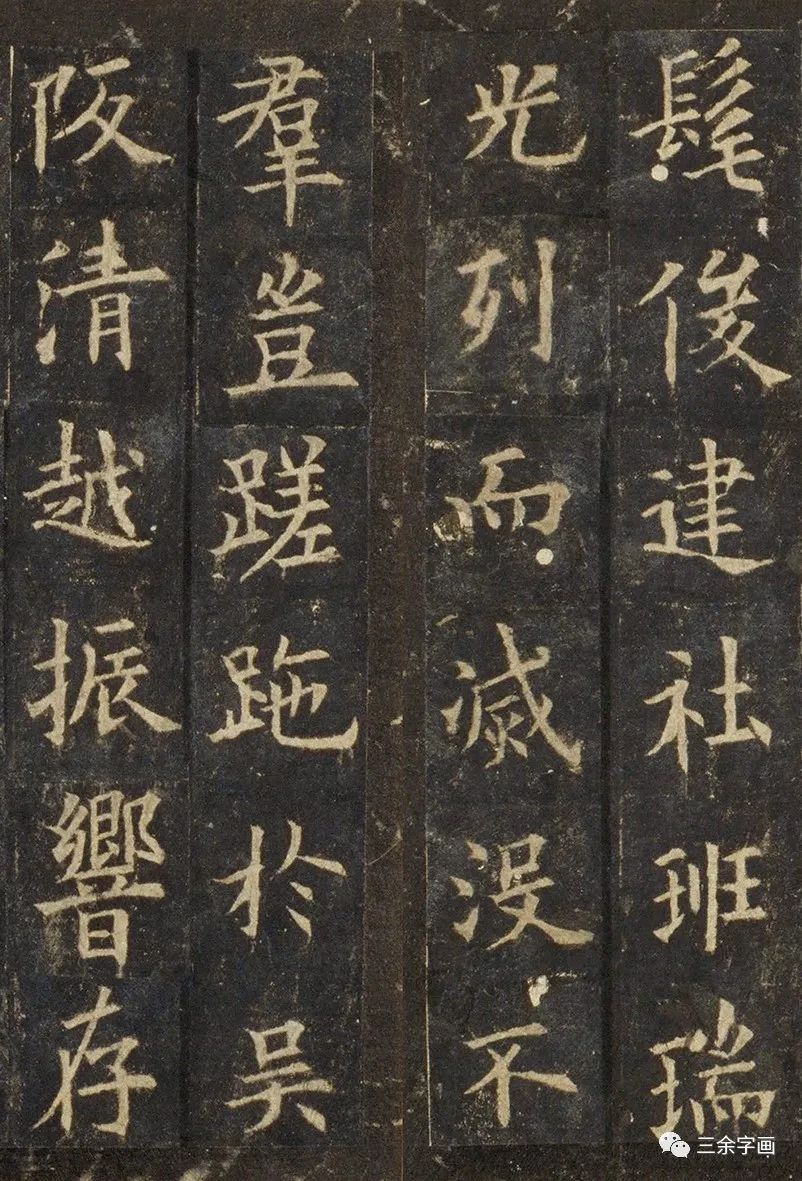 髦俊建社班瑞
光列而滅没不
羣豈蹉跎於吴
阪清越振響存
三余字画